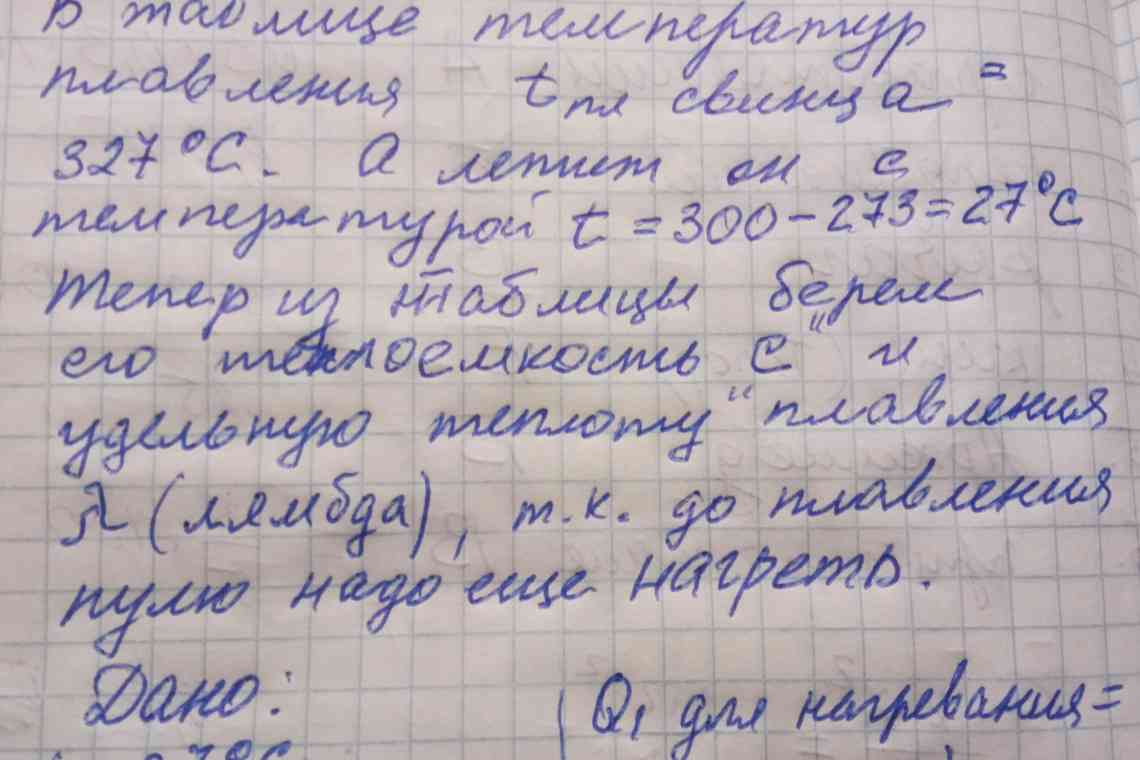 В таблице температур
плавления tпл свинца =
327 °C. А летит он с
температурой t = 300 – 273 = 27°C
Тепер из таблицы берем
его теплоемкость "С" и
удельную теплоту "плавления
λ (лямбда), т.к. до плавления
пулю надо еще нагреть.
Дано:
Q₁ для нагревания =